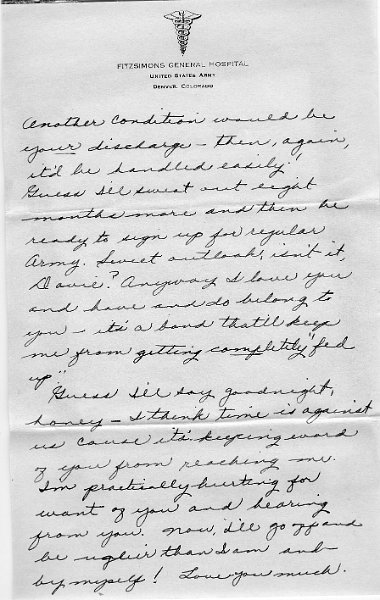 FITZSIMONS GENERAL HOSPITAL
UNITED STATES ARMY
DENVER, COLORADO
Another condition would be
your discharge – then, again,
it'd be handled easily!
Guess I'll sweat out eight
months more and then be
ready to sign up for regular
Army. Sweet outlook, isn't it,
Davie? Anyway I love you
and have and do belong to
you – it's a bond that'll keep
me from getting completely "fed
up"
Guess I'll say goodnight,
honey – I think time is against
us cause it's keeping word
of you from reaching me.
I'm practically hurting for
want of you and hearing
from you. Now, I'll go off and
be uglier than I am and
by myself! Love you much.